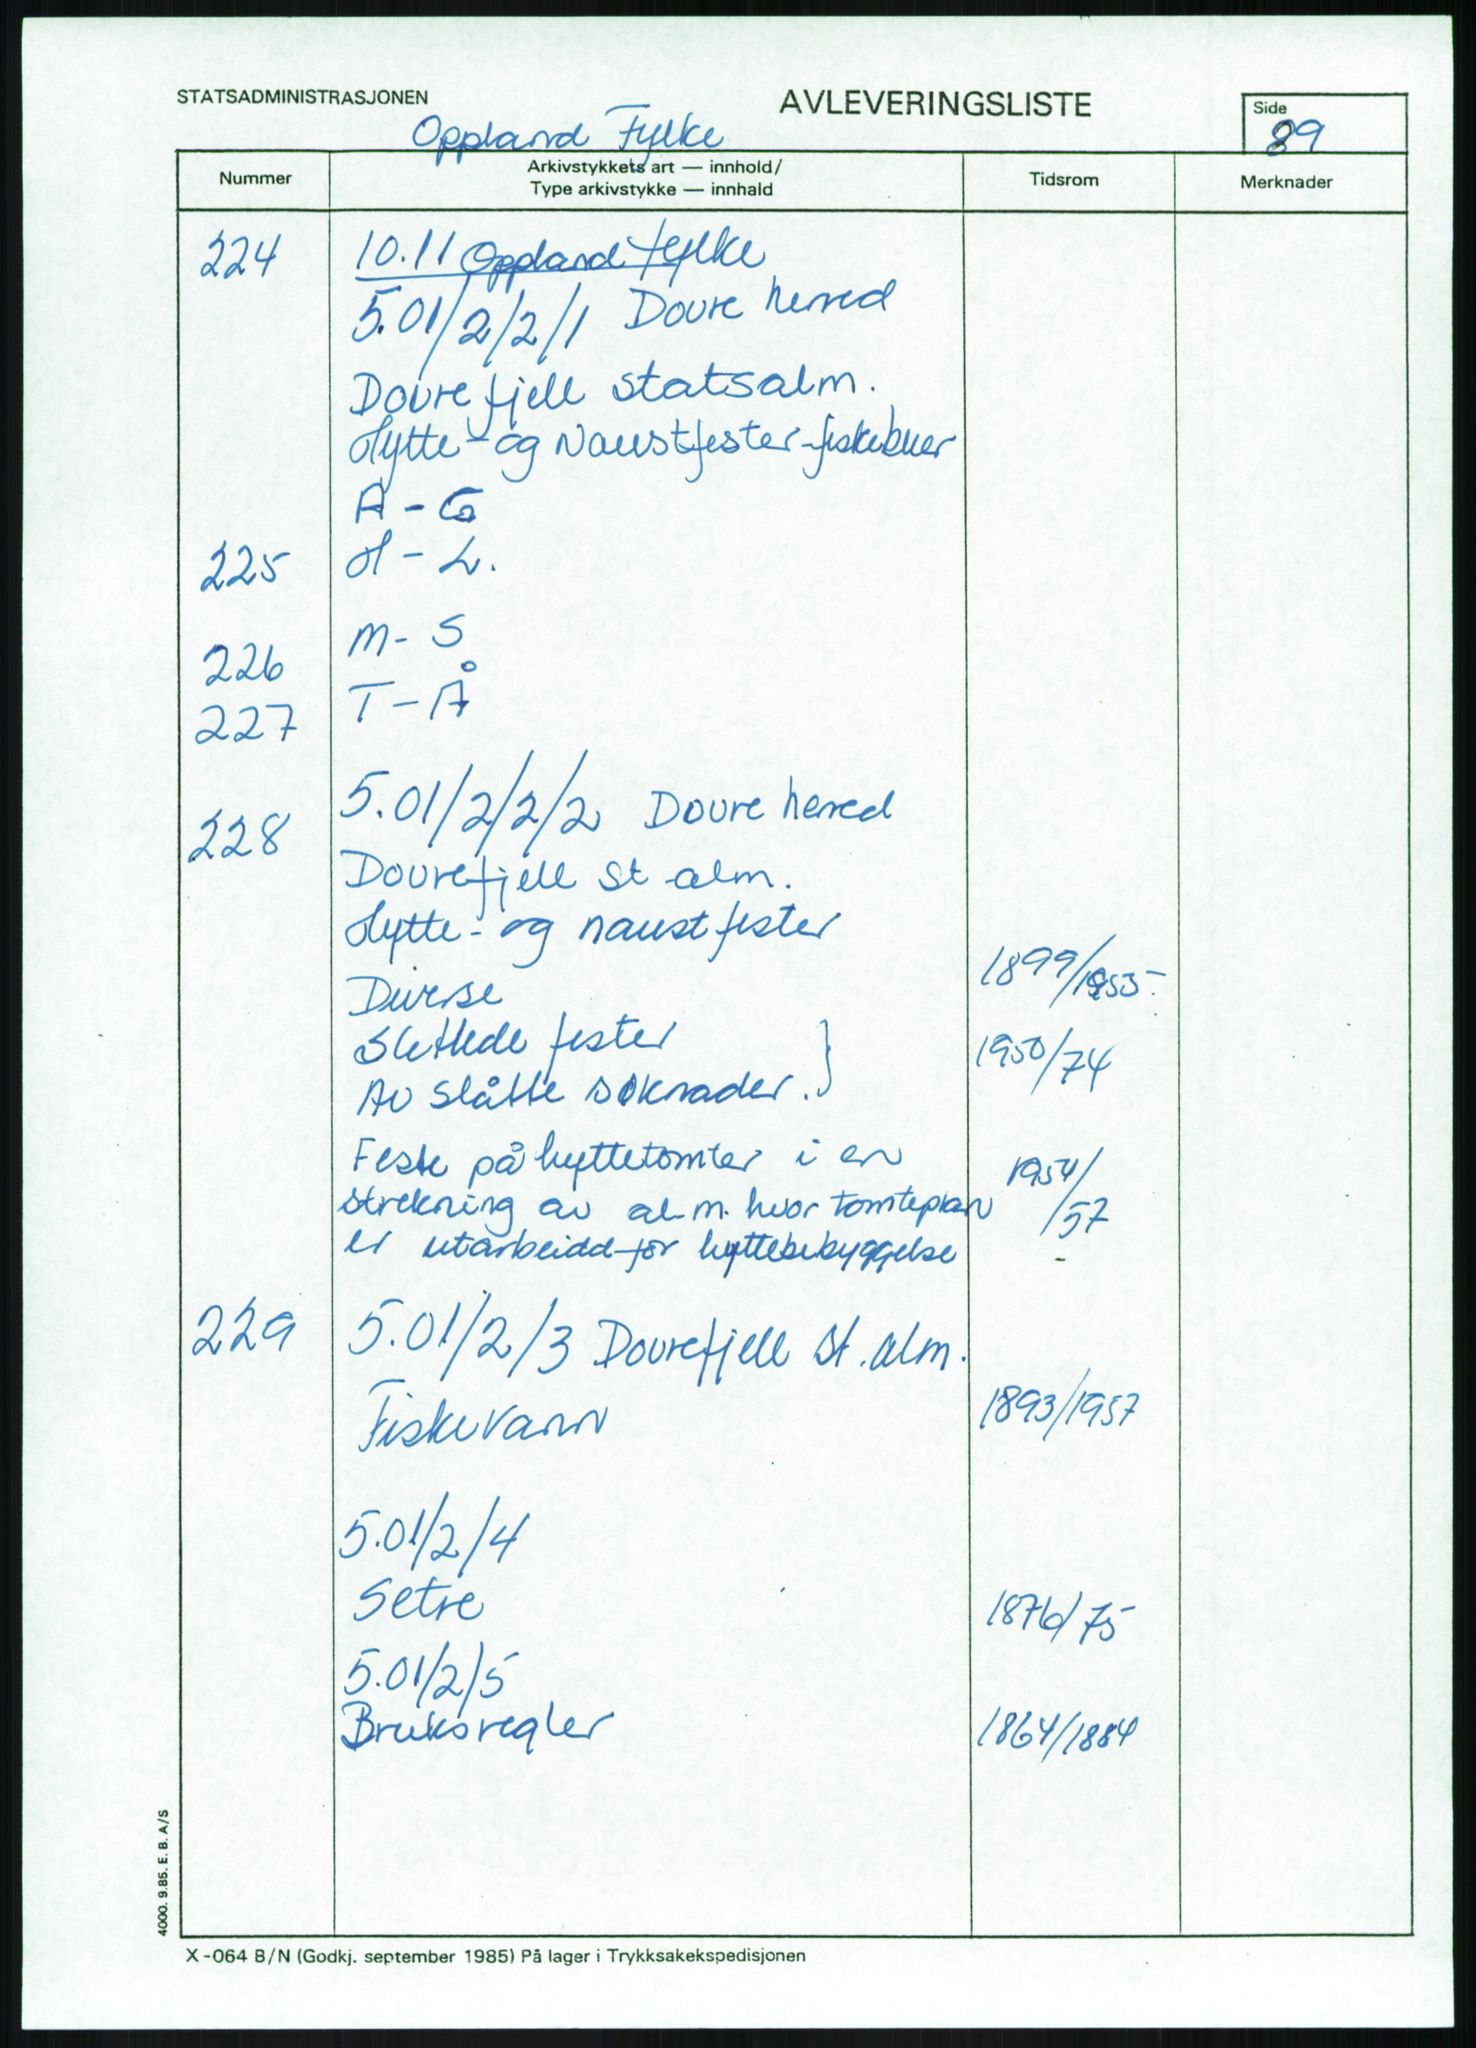 STATSADMINISTRASJONEN
AVLEVERINGSLISTE
Side
89
Oppland Fylke
Nummer
Arkivstykkets art — innhold/
Type arkivstykke — innhald
Tidsrom
Merknader
224 10.11 Oppland fylke
5.01/2/2/1 Dovre herred
Dovrefjell statsalm.
Hytte- og Naustfester-fiskebuer
A - G
225 H - L.
226 M - S
227 T - Å
228 5.01/2/2/2 Dovre herred
Dovrefjell st alm.
Hytte- og naustfester
Diverse 1899/1953-
Slettede fester } 1950/74
Avslåtte søknader.
Feste på hyttetomter i en 1954/
strekning av alm. hvor tomteplan /57
er utarbeidd for hyttebebyggelse -
229 5.01/2/3 Dovrefjell st. alm.
Fiskevann 1893/1957
5.01/2/4
Setre 1876/75
5.01/2/5
Bruksregler 1864/1884
4000. 9.85. E. B. A/S
X-064 B/N (Godkj. september 1985) På lager i Trykksakekspedisjonen